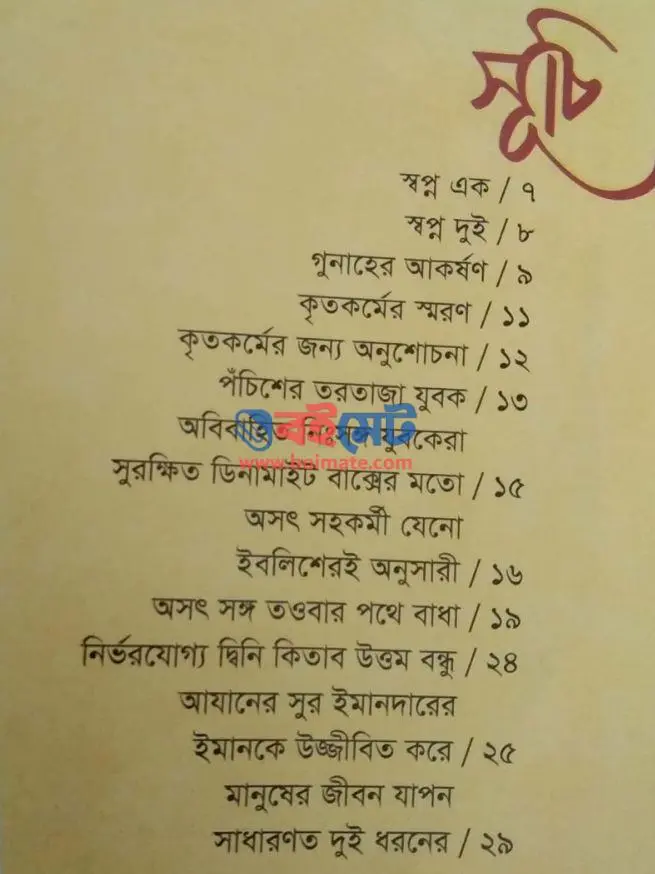 সূচি
স্বপ্ন এক / ৭
স্বপ্ন দুই / ৮
গুনাহের আকর্ষণ / ৯
কৃতকর্মের স্মরণ / ১১
কৃতকর্মের জন্য অনুশোচনা / ১২
পঁচিশের তরতাজা যুবক / ১৩
বইমেট
অবিবাহিত নিঃসঙ্গ যুবকেরা
www.boimate.com
সুরক্ষিত ডিনামাইট বাক্সের মতো / ১৫
অসৎ সহকর্মী যেনো
ইবলিশেরই অনুসারী / ১৬
অসৎ সঙ্গ তওবার পথে বাধা / ১৯
নির্ভরযোগ্য দ্বিনি কিতাব উত্তম বন্ধু / ২৪
আযানের সুর ইমানদারের
ইমানকে উজ্জীবিত করে / ২৫
মানুষের জীবন যাপন
সাধারণত দুই ধরনের / ২৯